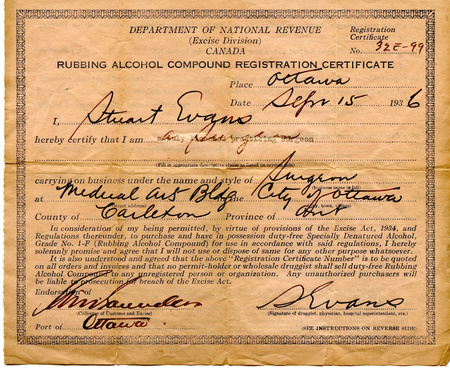 DEPARTMENT OF NATIONAL REVENUE
(Excise Division)
CANADA
Registration
Certificate
No. 32E-99
RUBBING ALCOHOL COMPOUND REGISTRATION CERTIFICATE
Place Ottawa
Date Sept 15 1936
I, Stuart Evans
hereby certify that I am Surgeon
(Fill in appropriate descriptive clause as listed below)
carrying on business under the name and style of Surgeon
at Medical Art Bldg the City of Ottawa
County of Carleton Province of Ont
In consideration of my being permitted, by virtue of provisions of the Excise Act, 1934, and
Regulations thereunder, to purchase and have in possession duty-free Specially Denatured Alcohol,
Grade No. 1-F (Rubbing Alcohol Compound) for use in accordance with said regulations, I hereby
solemnly promise and agree that I will not use or dispose of same for any other purpose whatsoever.
It is also understood and agreed that the above "Registration Certificate Number" is to be quoted
on all orders and invoices and that no permit-holder or wholesale druggist shall sell duty-free Rubbing
Alcohol Compound to any unregistered person or organization. Any unauthorized purchasers will
be liable to prosecution for breach of the Excise Act.
Endorsation of
Saunders
(Collector of Customs and Excise)
SEvans
(Signature of druggist, physician, hospital superintendent, etc.)
Port of Ottawa
(SEE INSTRUCTIONS ON REVERSE SIDE)